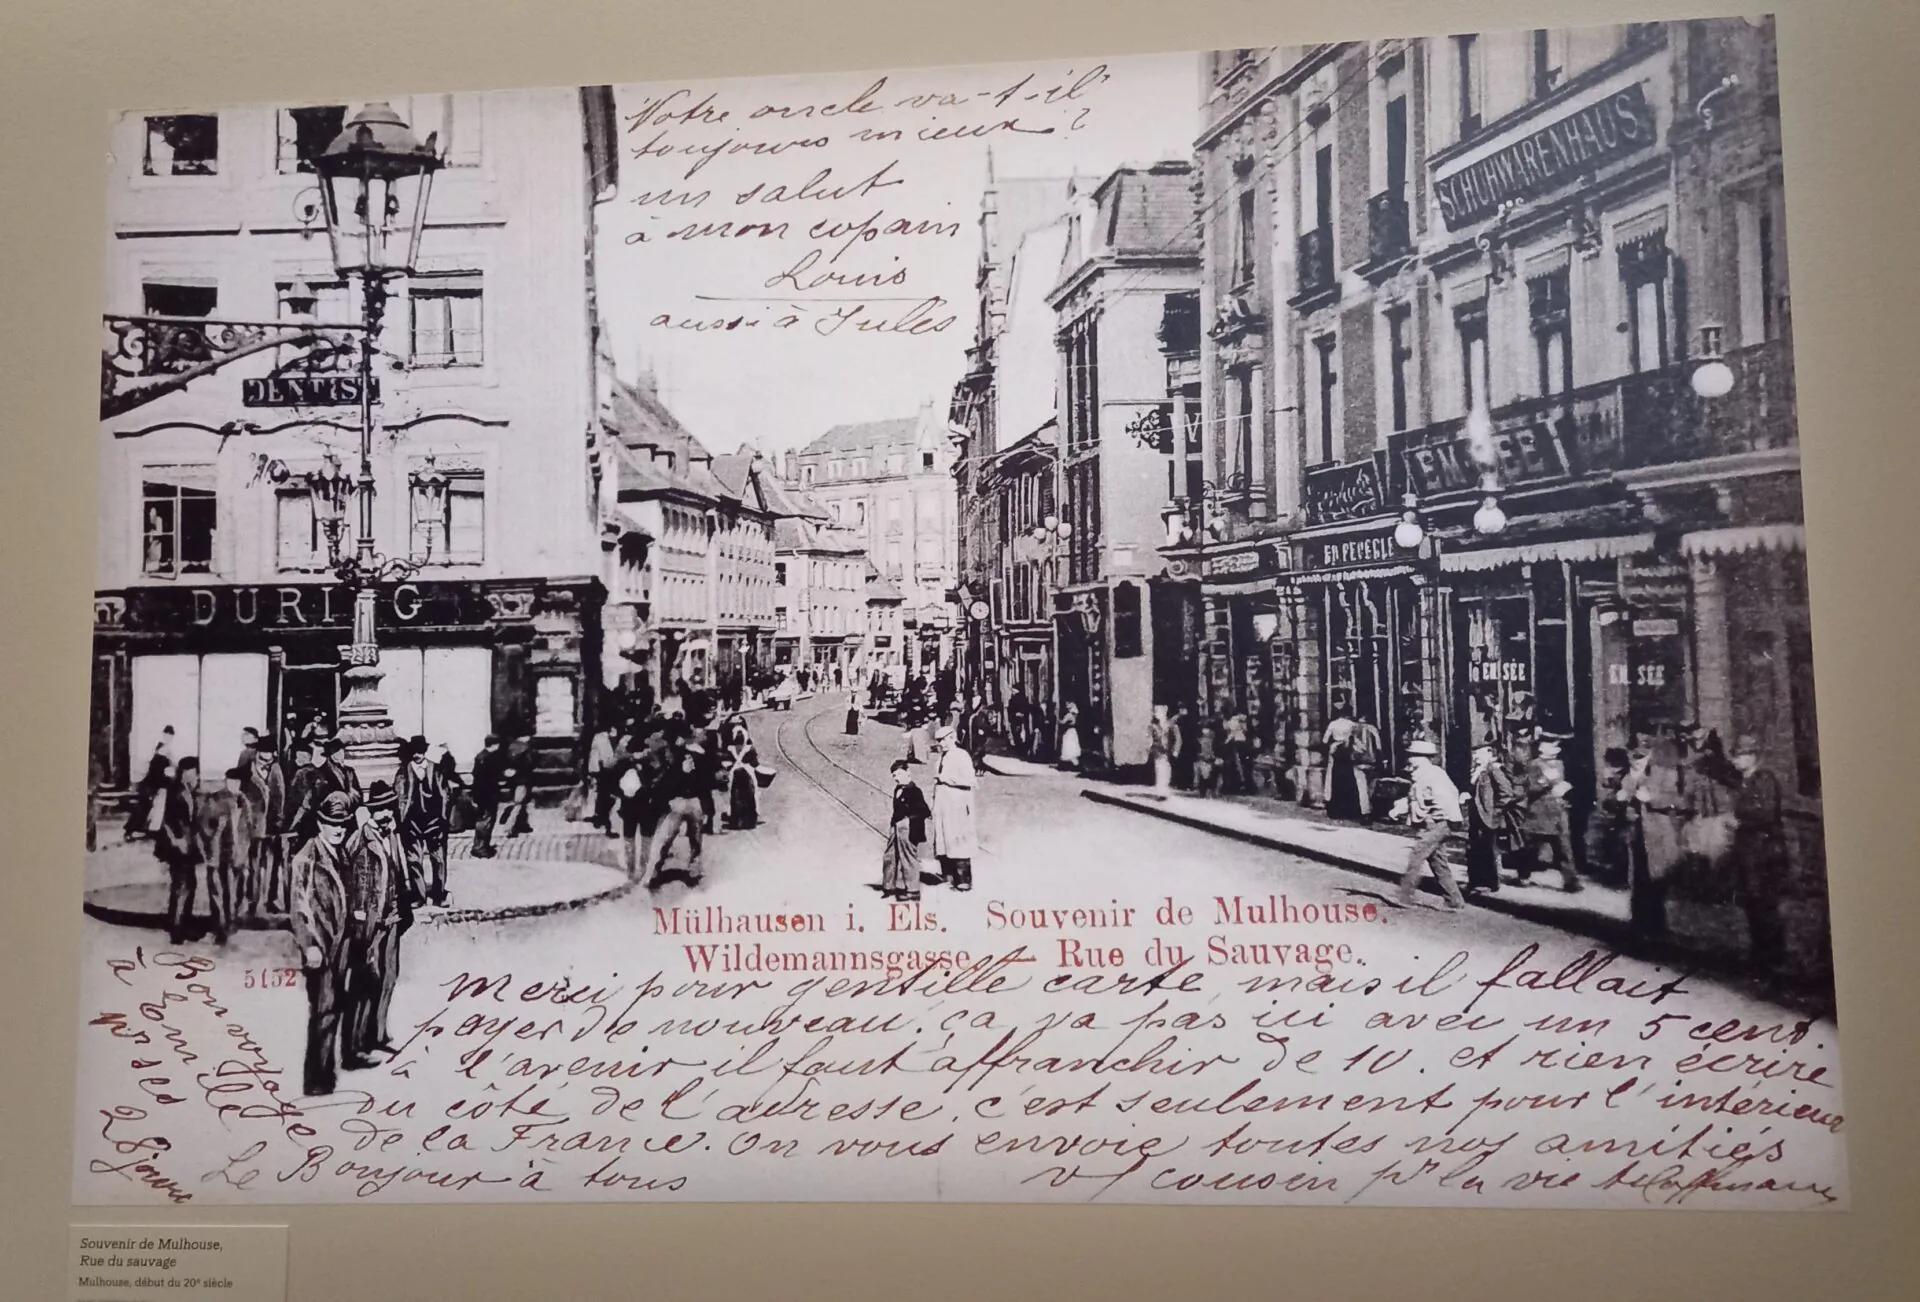 Votre oncle va-t-il
toujours mieux?
un salut
à mon copain
Louis
aussi à Jules
SCHUHWARENHAUS
DENTIST
DURI G
EN SÉE
EN SÉE
Mülhausen i. Els. Souvenir de Mulhouse.
Wildemannsgasse — Rue du Sauvage.
5152
Merci pour gentille carte, mais il fallait
payer de nouveau. ça va pas ici avec un 5 cent.
à l'avenir il faut affranchir de 10. et rien écrire
du côté de l'adresse, c'est seulement pour l'intérieur
de la France. On vous envoie toutes nos amitiés
Le Bonjour à tous
cousin pr la vie
Bon voyage
à Emile
pr ses
28 jours
Souvenir de Mulhouse,
Rue du sauvage
Mulhouse, début du 20e siècle